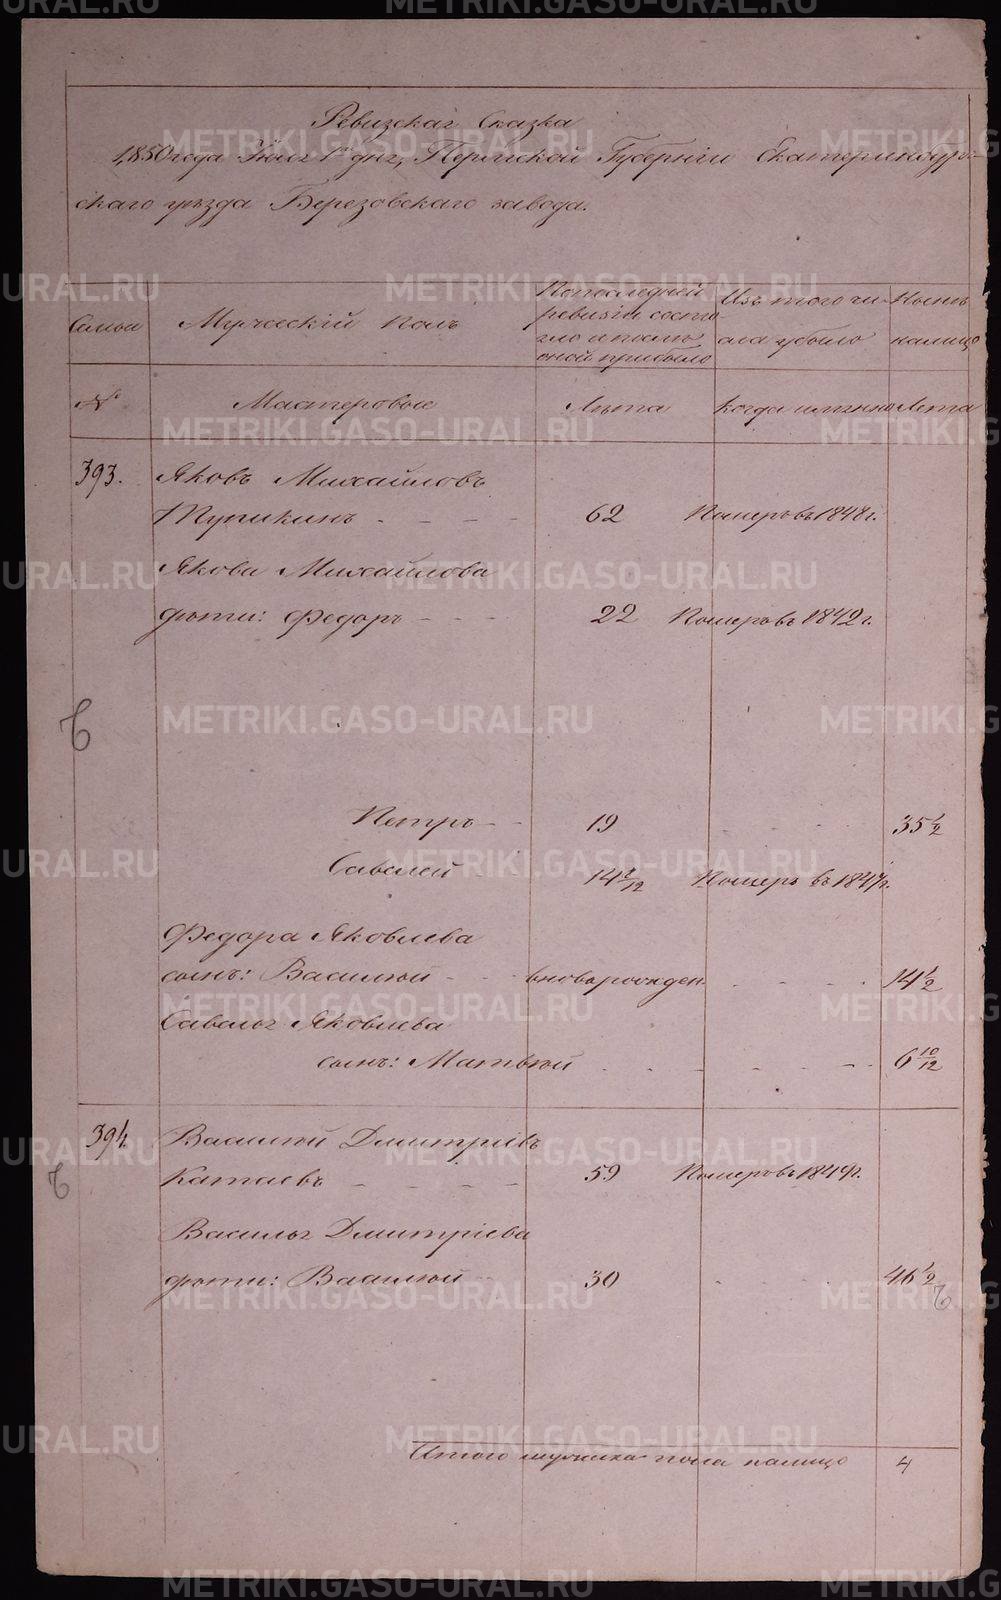 Ревизская Сказка
1850 года Юля 1го дня, Пермской Губернiи Екатеринбург-
скаго уѣзда Березовскаго завода.
Семьи Мужескiй Полъ По последней ревизiи состо-яло и после оной прибыло Изъ того чи-сла убыло Нынѣ налицо
№ Мастеровые Лѣта Когда именно Лета
393. Яковъ Михайловъ
Тупикинъ - - - - 62 Померъ въ 1848 г.
Якова Михайлова
дѣти: Федоръ - - - 22 Померъ въ 1842 г.
Петръ - - 19 - - 35 1/2
Савелей - - 14 Померъ въ 1847 г.
Федора Яковлева
сынъ: Василiй - - вновь рожден. - - - - 14 1/2
Савелья Яковлева
сынъ: Матвѣй - - - - - 6 10/12
394. Василiй Дмитрiевъ
Катаевъ - - - - 59 Померъ въ 1849 г.
Василья Дмитрiева
дѣти: Василiй - 30 - - - - 46 1/2
Итого мужеска пола налицо 4
METRIKI.GASO-URAL.RU